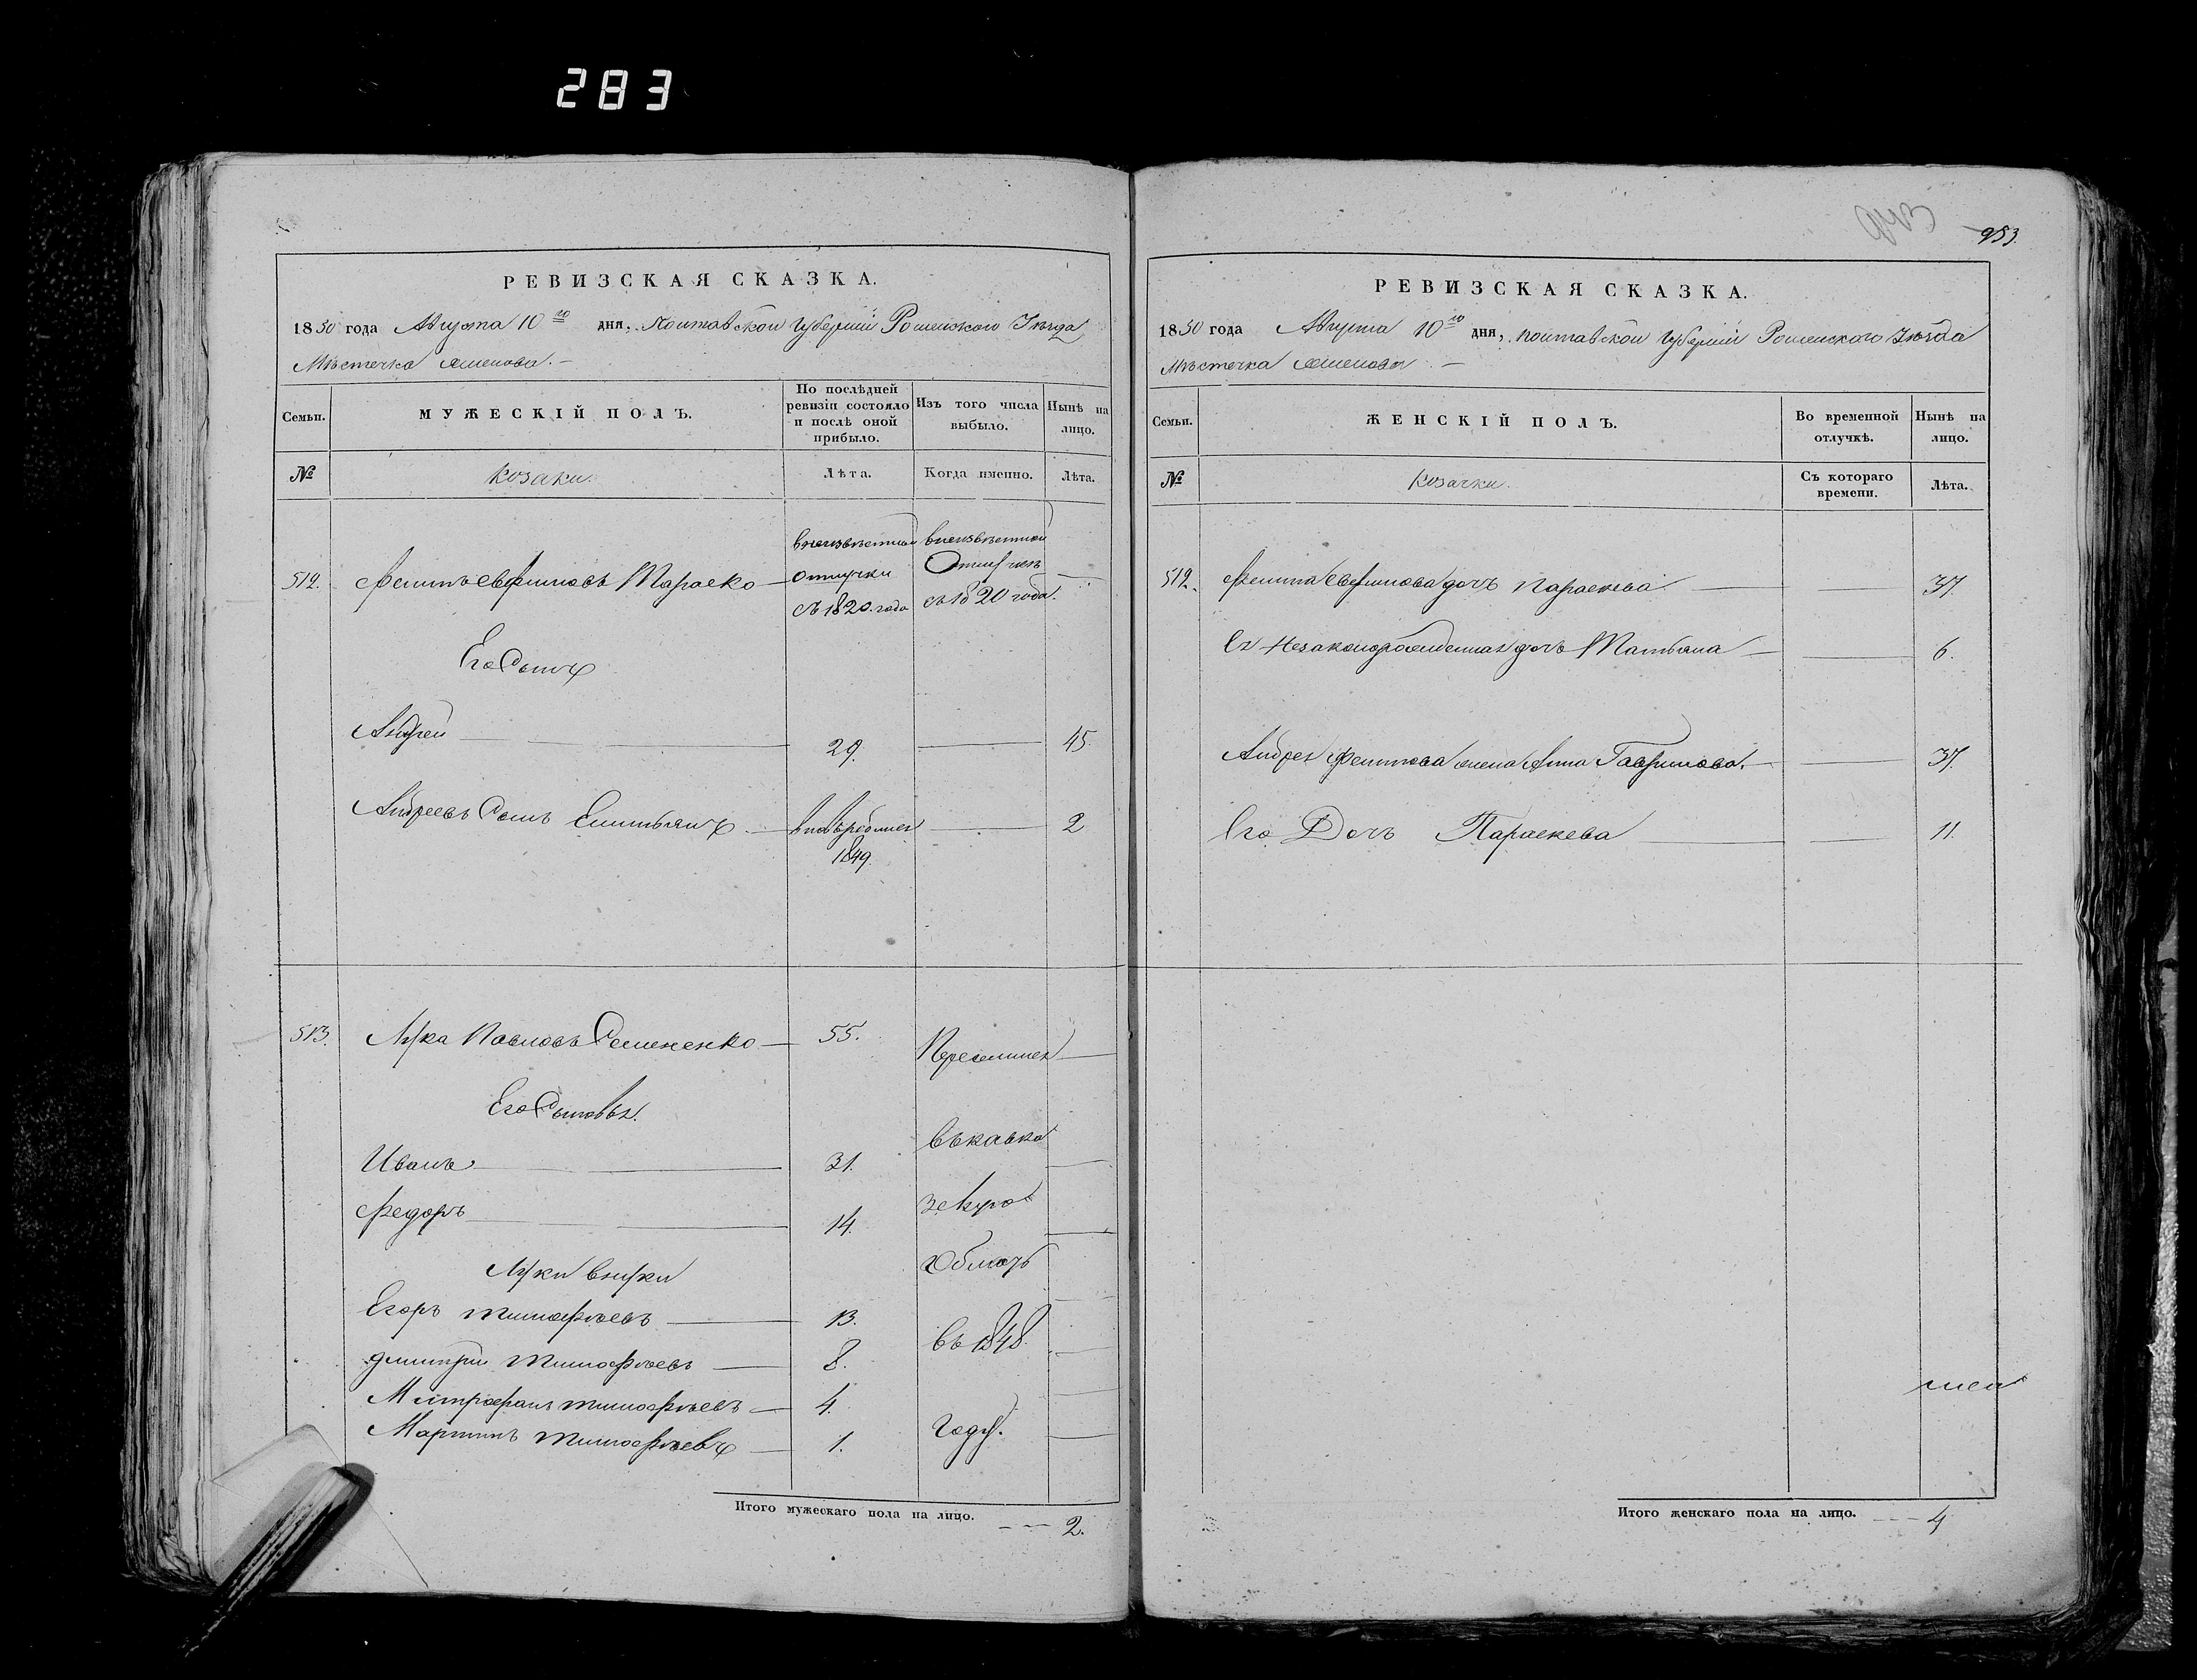 283
953.
РЕВИЗСКАЯ СКАЗКА.
1850 года Августа 10го дня, Полтавской Губернии Роменского Уезда
Местечка Смелова. –
Семьи.
МУЖЕСКІЙ ПОЛЪ.
По послѣдней ревизіи состояло и послѣ оной прибыло.
Изъ того числа выбыло.
Нынѣ на лицо.
№
Козаки.
Лѣта.
Когда именно.
Лѣта.
512. Филипъ Евфимовъ Тараско
внеизвестной отлучки съ 1820. года
внеизвестной Отлучке съ 1820 года.
Его Сынъ
Андрей 29. 45.
Андреевъ Сынъ Емельянъ вновьродился 1849. 2
513. Лука Павловъ Семененко 55. Переселились
Его Сыновья.
Иванъ 31. въ Кавка
Федоръ 14. зскую
Луки внуки Область
Егоръ Тимофѣевъ 13.
Дмитрий Тимофѣевъ 8. въ 1848
Митрофанъ Тимофѣевъ 4.
Мартинъ Тимофѣевъ 1. году.
Итого мужескаго пола на лицо. 2.
РЕВИЗСКАЯ СКАЗКА.
1850 года Августа 10го дня, Полтавской Губернии Роменского Уезда
Местечка Смелова –
Семьи.
ЖЕНСКІЙ ПОЛЪ.
Во временной отлучкѣ.
Нынѣ на лицо.
№
Козачки.
Съ котораго времени.
Лѣта.
512. Филипа Евфимова дочь Параскева 37.
Ея Незаконорожденная дочь Татьяна 6.
Андрея Филипова жена Анна Гаврилова. 37.
Его Дочь Параскева 11.
Итого женскаго пола на лицо. 4